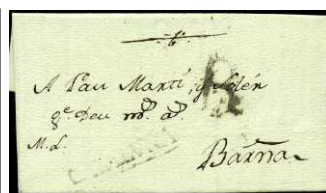 A Pau Martí, y Solér
g.e Deu m.s a.s
M.L.
Barna